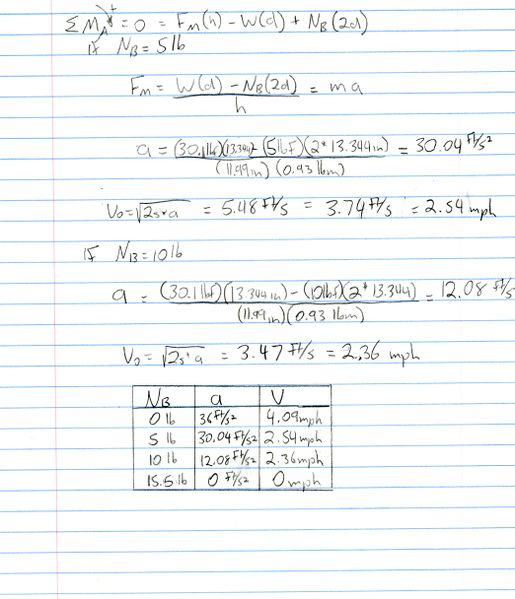 ΣM_A = 0 = Fm(h) - W(d) + N_B(2d)
If N_B = 5 lb
Fm = W(d) - N_B(2d) / h = ma
a = (30.1 lbf)(13.344) - (5 lbf)(2*13.344in) / (11.99in)(0.93 lbm) = 30.04 ft/s²
Vo = √2s*a = 5.48 ft/s = 3.74 ft/s = 2.54 mph
If N_B = 10 lb
a = (30.1 lbf)(13.344in) - (10lbf)(2*13.344) / (11.99in)(0.93 lbm) = 12.08 ft/s
Vo = √2s*a = 3.47 ft/s = 2.36 mph
N_B a V
0 lb 36 ft/s² 4.09mph
5 lb 30.04 ft/s² 2.54mph
10 lb 12.08 ft/s² 2.36mph
15.5 lb 0 ft/s² 0mph